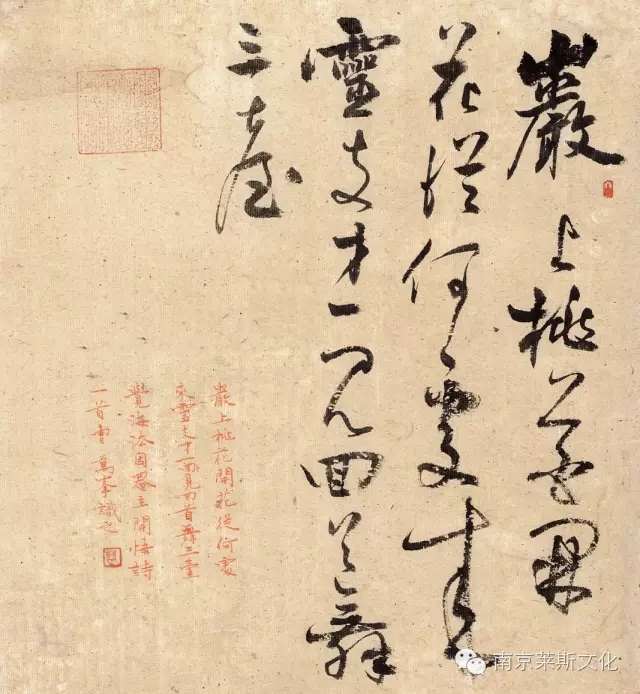 巖上桃花開
花從何處來
靈雲才一見回首舞
三臺
巖上桃花開花從何處
來靈雲才一見回首舞三臺
覺海法因菴主開悟詩
一首曹萬峯識之
南京莱斯文化